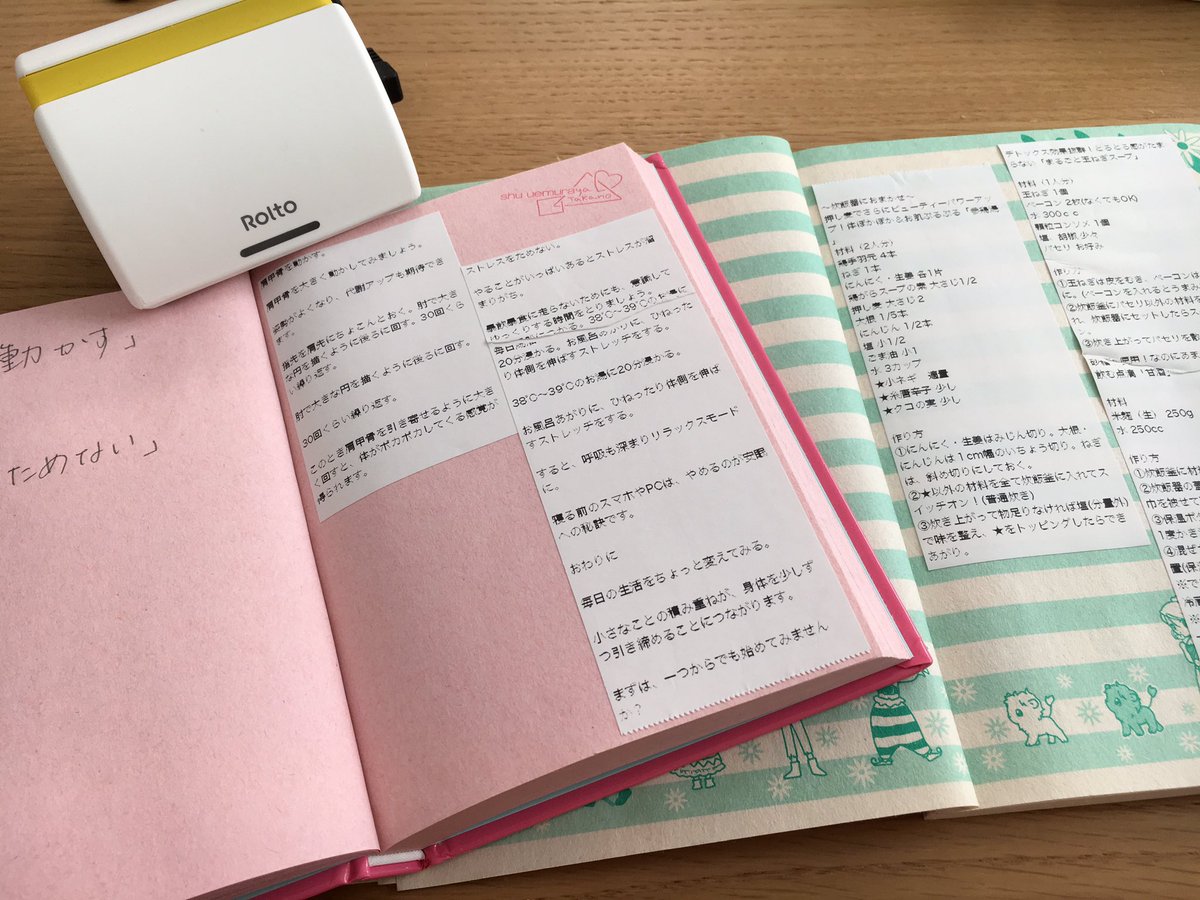 Rolto
動かす」
ためない」
shu uemura
肩甲骨を動かす。
肩甲骨を大きく動かしてみましょう。
姿勢がよくなり、代謝アップも期待でき
ます。
指先を肩先にちょこんとおく。肘で大き
な円を描くように後ろに回す。30回くら
い繰り返す。
肘で大きな円を描くように後ろに回す。
30回くらい繰り返す。
このとき肩甲骨を引き寄せるように大き
く回すと、体がポカポカしてくる感覚が
得られます。
ストレスをためない。
やることがいっぱいあるとストレスが溜
まりがち。
暴飲暴食に走らないためにも、意識して
ゆっくりする時間をとりましょう。
20分浸かる。お風呂あがりに、ひねった
り体側を伸ばすストレッチをする。
38℃〜39℃のお湯に20分浸かる。
お風呂あがりに、ひねったり体側を伸ば
すストレッチをする。
すると、呼吸も深まりリラックスモード
に。
寝る前のスマホやPCは、やめるのが安眠
への秘訣です。
おわりに
毎日の生活をちょっと変えてみる。
小さなことの積み重ねが、身体を少しず
つ引き締めることにつながります。
まずは、一つからでも始めてみません
か？
〜炊飯器におまかせ〜
押し麦でさらにビューティーパワーアッ
プ！体ぽかぽか＆お肌ぷるぷる「参鶏湯
」
材料（2人分）
鶏手羽元 4本
ねぎ 1本
にんにく・生姜 各1片
鶏がらスープの素 大さじ1/2
押し麦 大さじ2
大根 1/5本
にんじん 1/2本
塩 小1/2
ごま油 小1
水 3カップ
★小ネギ 適量
★糸唐辛子 少し
★クコの実 少し
作り方
①にんにく・生姜はみじん切り。大根・
にんじんは1cm幅のいちょう切り。ねぎ
は、斜め切りにしておく。
②★以外の材料を全て炊飯釜に入れてス
イッチオン！(普通炊き)
③炊き上がって物足りなければ塩(分量外)
で味を整え、★をトッピングしたらでき
あがり。
デトックス効果抜群！とろとろ感がたま
らない「まるごと玉ねぎスープ」
材料（1人分）
玉ねぎ 1個
ベーコン 2枚(なくてもOK)
水 300cc
顆粒コンソメ 1個
塩、胡椒 少々
パセリ お好み
作り方
①玉ねぎは皮をむき、ベーコンは
に。(ベーコンを入れるとうまみ
②炊飯釜にパセリ以外の材料
れ、炊飯器にセットしたらス
③炊き上がってパセリを
飲む点滴「甘酒」
材料
米麹（生） 250g
水 250cc
作り方
①炊飯釜に材
②炊飯器の
巾を被せて
③保温ボ
1度かき
④混ぜ